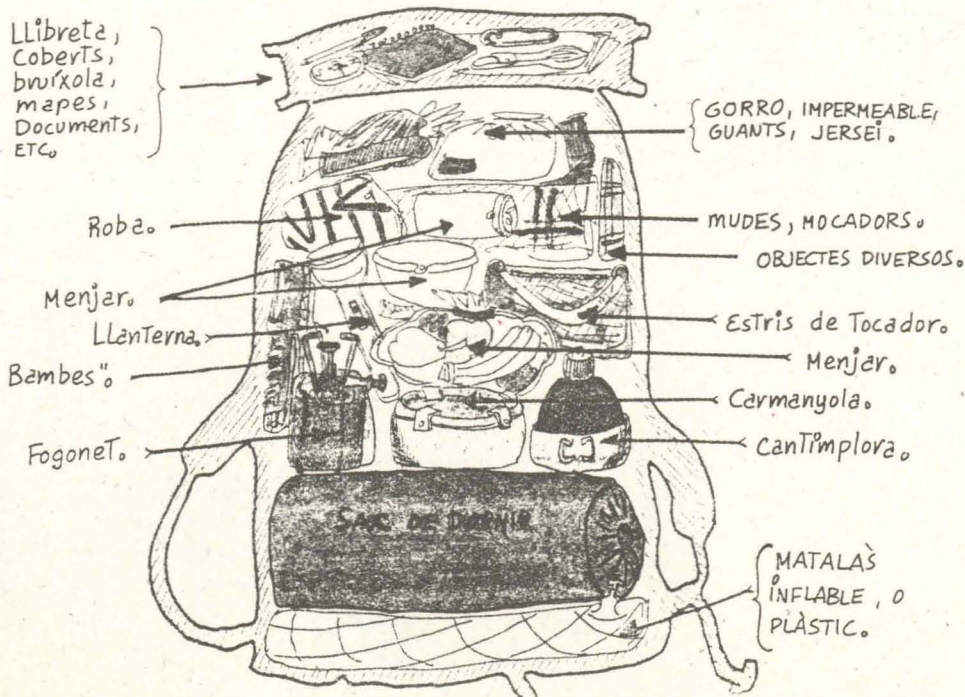 LLibreta,
Coberts,
bruíxola,
mapes,
Documents,
ETC.
GORRO, IMPERMEABLE,
GUANTS, JERSEI.
Roba.
MUDES, MOCADORS.
OBJECTES DIVERSOS.
Menjar.
LLanterna.
Estris de Tocador.
Bambes".
Menjar.
Carmanyola.
Fogonet.
CanTimplora.
SAC DE DORMIR
MATALÀS
INFLABLE, O
PLÀSTIC.